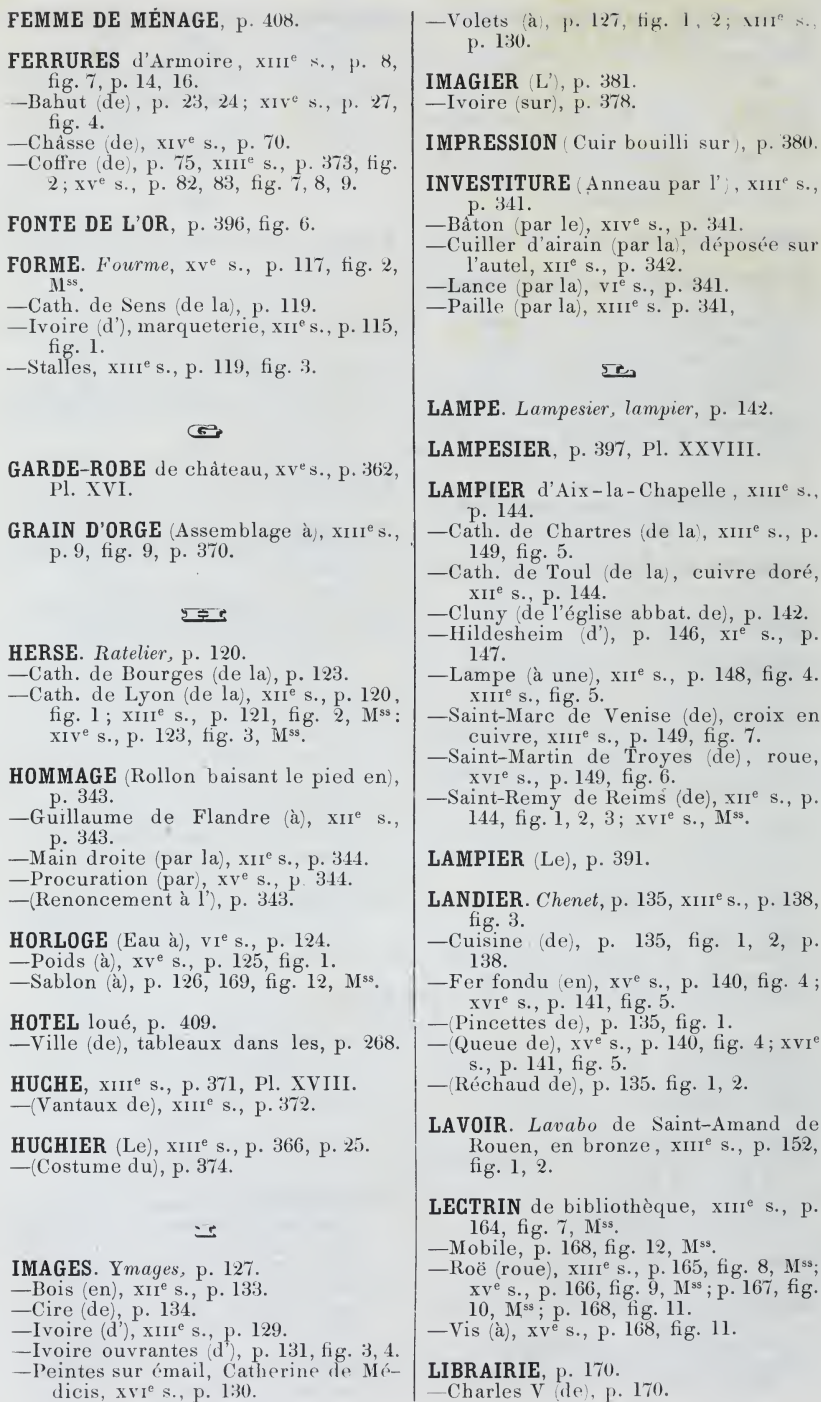 FEMME DE MÉNAGE, p. 408.
FERRURES d'Armoire, XIIIᵉ s., p. 8,
fig. 7, p. 14, 16.
—Bahut (de), p. 23, 24; XIVᵉ s., p. 27,
fig. 4.
—Châsse (de), XIVᵉ s., p. 70.
—Coffre (de), p. 75, XIIIᵉ s., p. 373, fig.
2; XVᵉ s., p. 82, 83, fig. 7, 8, 9.
FONTE DE L'OR, p. 396, fig. 6.
FORME. Fourme, XVᵉ s., p. 117, fig. 2,
Mˢˢ.
—Cath. de Sens (de la), p. 119.
—Ivoire (d'), marqueterie, XIIᵉ s., p. 115,
fig. 1.
—Stalles, XIIIᵉ s., p. 119, fig. 3.
GARDE-ROBE de château, XVᵉ s., p. 362,
Pl. XVI.
GRAIN D'ORGE (Assemblage à), XIIIᵉ s.,
p. 9, fig. 9, p. 370.
HERSE. Ratelier, p. 120.
—Cath. de Bourges (de la), p. 123.
—Cath. de Lyon (de la), XIIᵉ s., p. 120,
fig. 1; XIIIᵉ s., p. 121, fig. 2, Mˢˢ:
XIVᵉ s., p. 123, fig. 3, Mˢˢ.
HOMMAGE (Rollon baisant le pied en),
p. 343.
—Guillaume de Flandre (à), XIIᵉ s.,
p. 343.
—Main droite (par la), XIIᵉ s., p. 344.
—Procuration (par), XVᵉ s., p. 344.
—(Renoncement à l'), p. 343.
HORLOGE (Eau à), VIᵉ s., p. 124.
—Poids (à), XVᵉ s., p. 125, fig. 1.
—Sablon (à), p. 126, 169, fig. 12, Mˢˢ.
HOTEL loué, p. 409.
—Ville (de), tableaux dans les, p. 268.
HUCHE, XIIIᵉ s., p. 371, Pl. XVIII.
—(Vantaux de), XIIIᵉ s., p. 372.
HUCHIER (Le), XIIIᵉ s., p. 366, p. 25.
—(Costume du), p. 374.
IMAGES. Ymages, p. 127.
—Bois (en), XIIᵉ s., p. 133.
—Cire (de), p. 134.
—Ivoire (d'), XIIIᵉ s., p. 129.
—Ivoire ouvrantes (d'), p. 131, fig. 3, 4.
—Peintes sur émail, Catherine de Mé-
dicis, XVIᵉ s., p. 130.
—Volets (à), p. 127, fig. 1, 2; XIIIᵉ s.,
p. 130.
IMAGIER (L'), p. 381.
—Ivoire (sur), p. 378.
IMPRESSION (Cuir bouilli sur), p. 380.
INVESTITURE (Anneau par l'), XIIIᵉ s.,
p. 341.
—Bâton (par le), XIVᵉ s., p. 341.
—Cuiller d'airain (par la), déposée sur
l'autel, XIIᵉ s., p. 342.
—Lance (par la), VIᵉ s., p. 341.
—Paille (par la), XIIIᵉ s. p. 341,
LAMPE. Lampesier, lampier, p. 142.
LAMPESIER, p. 397, Pl. XXVIII.
LAMPIER d'Aix-la-Chapelle, XIIIᵉ s.,
p. 144.
—Cath. de Chartres (de la), XIIIᵉ s., p.
149, fig. 5.
—Cath. de Toul (de la), cuivre doré,
XIIᵉ s., p. 144.
—Cluny (de l'église abbat. de), p. 142.
—Hildesheim (d'), p. 146, XIᵉ s., p.
147.
—Lampe (à une), XIIᵉ s., p. 148, fig. 4.
XIIIᵉ s., fig. 5.
—Saint-Marc de Venise (de), croix en
cuivre, XIIIᵉ s., p. 149, fig. 7.
—Saint-Martin de Troyes (de), roue,
XVIᵉ s., p. 149, fig. 6.
—Saint-Remy de Reims (de), XIIᵉ s., p.
144, fig. 1, 2, 3; XVIᵉ s., Mˢˢ.
LAMPIER (Le), p. 391.
LANDIER. Chenet, p. 135, XIIIᵉ s., p. 138,
fig. 3.
—Cuisine (de), p. 135, fig. 1, 2, p.
138.
—Fer fondu (en), XVᵉ s., p. 140, fig. 4;
XVIᵉ s., p. 141, fig. 5.
—(Pincettes de), p. 135, fig. 1.
—(Queue de), XVᵉ s., p. 140, fig. 4; XVIᵉ
s., p. 141, fig. 5.
—(Réchaud de), p. 135. fig. 1, 2.
LAVOIR. Lavabo de Saint-Amand de
Rouen, en bronze, XIIIᵉ s., p. 152,
fig. 1, 2.
LECTRIN de bibliothèque, XIIIᵉ s., p.
164, fig. 7, Mˢˢ.
—Mobile, p. 168, fig. 12, Mˢˢ.
—Roë (roue), XIIIᵉ s., p. 165, fig. 8, Mˢˢ;
XVᵉ s., p. 166, fig. 9, Mˢˢ; p. 167, fig.
10, Mˢˢ; p. 168, fig. 11.
—Vis (à), XVᵉ s., p. 168, fig. 11.
LIBRAIRIE, p. 170.
—Charles V (de), p. 170.